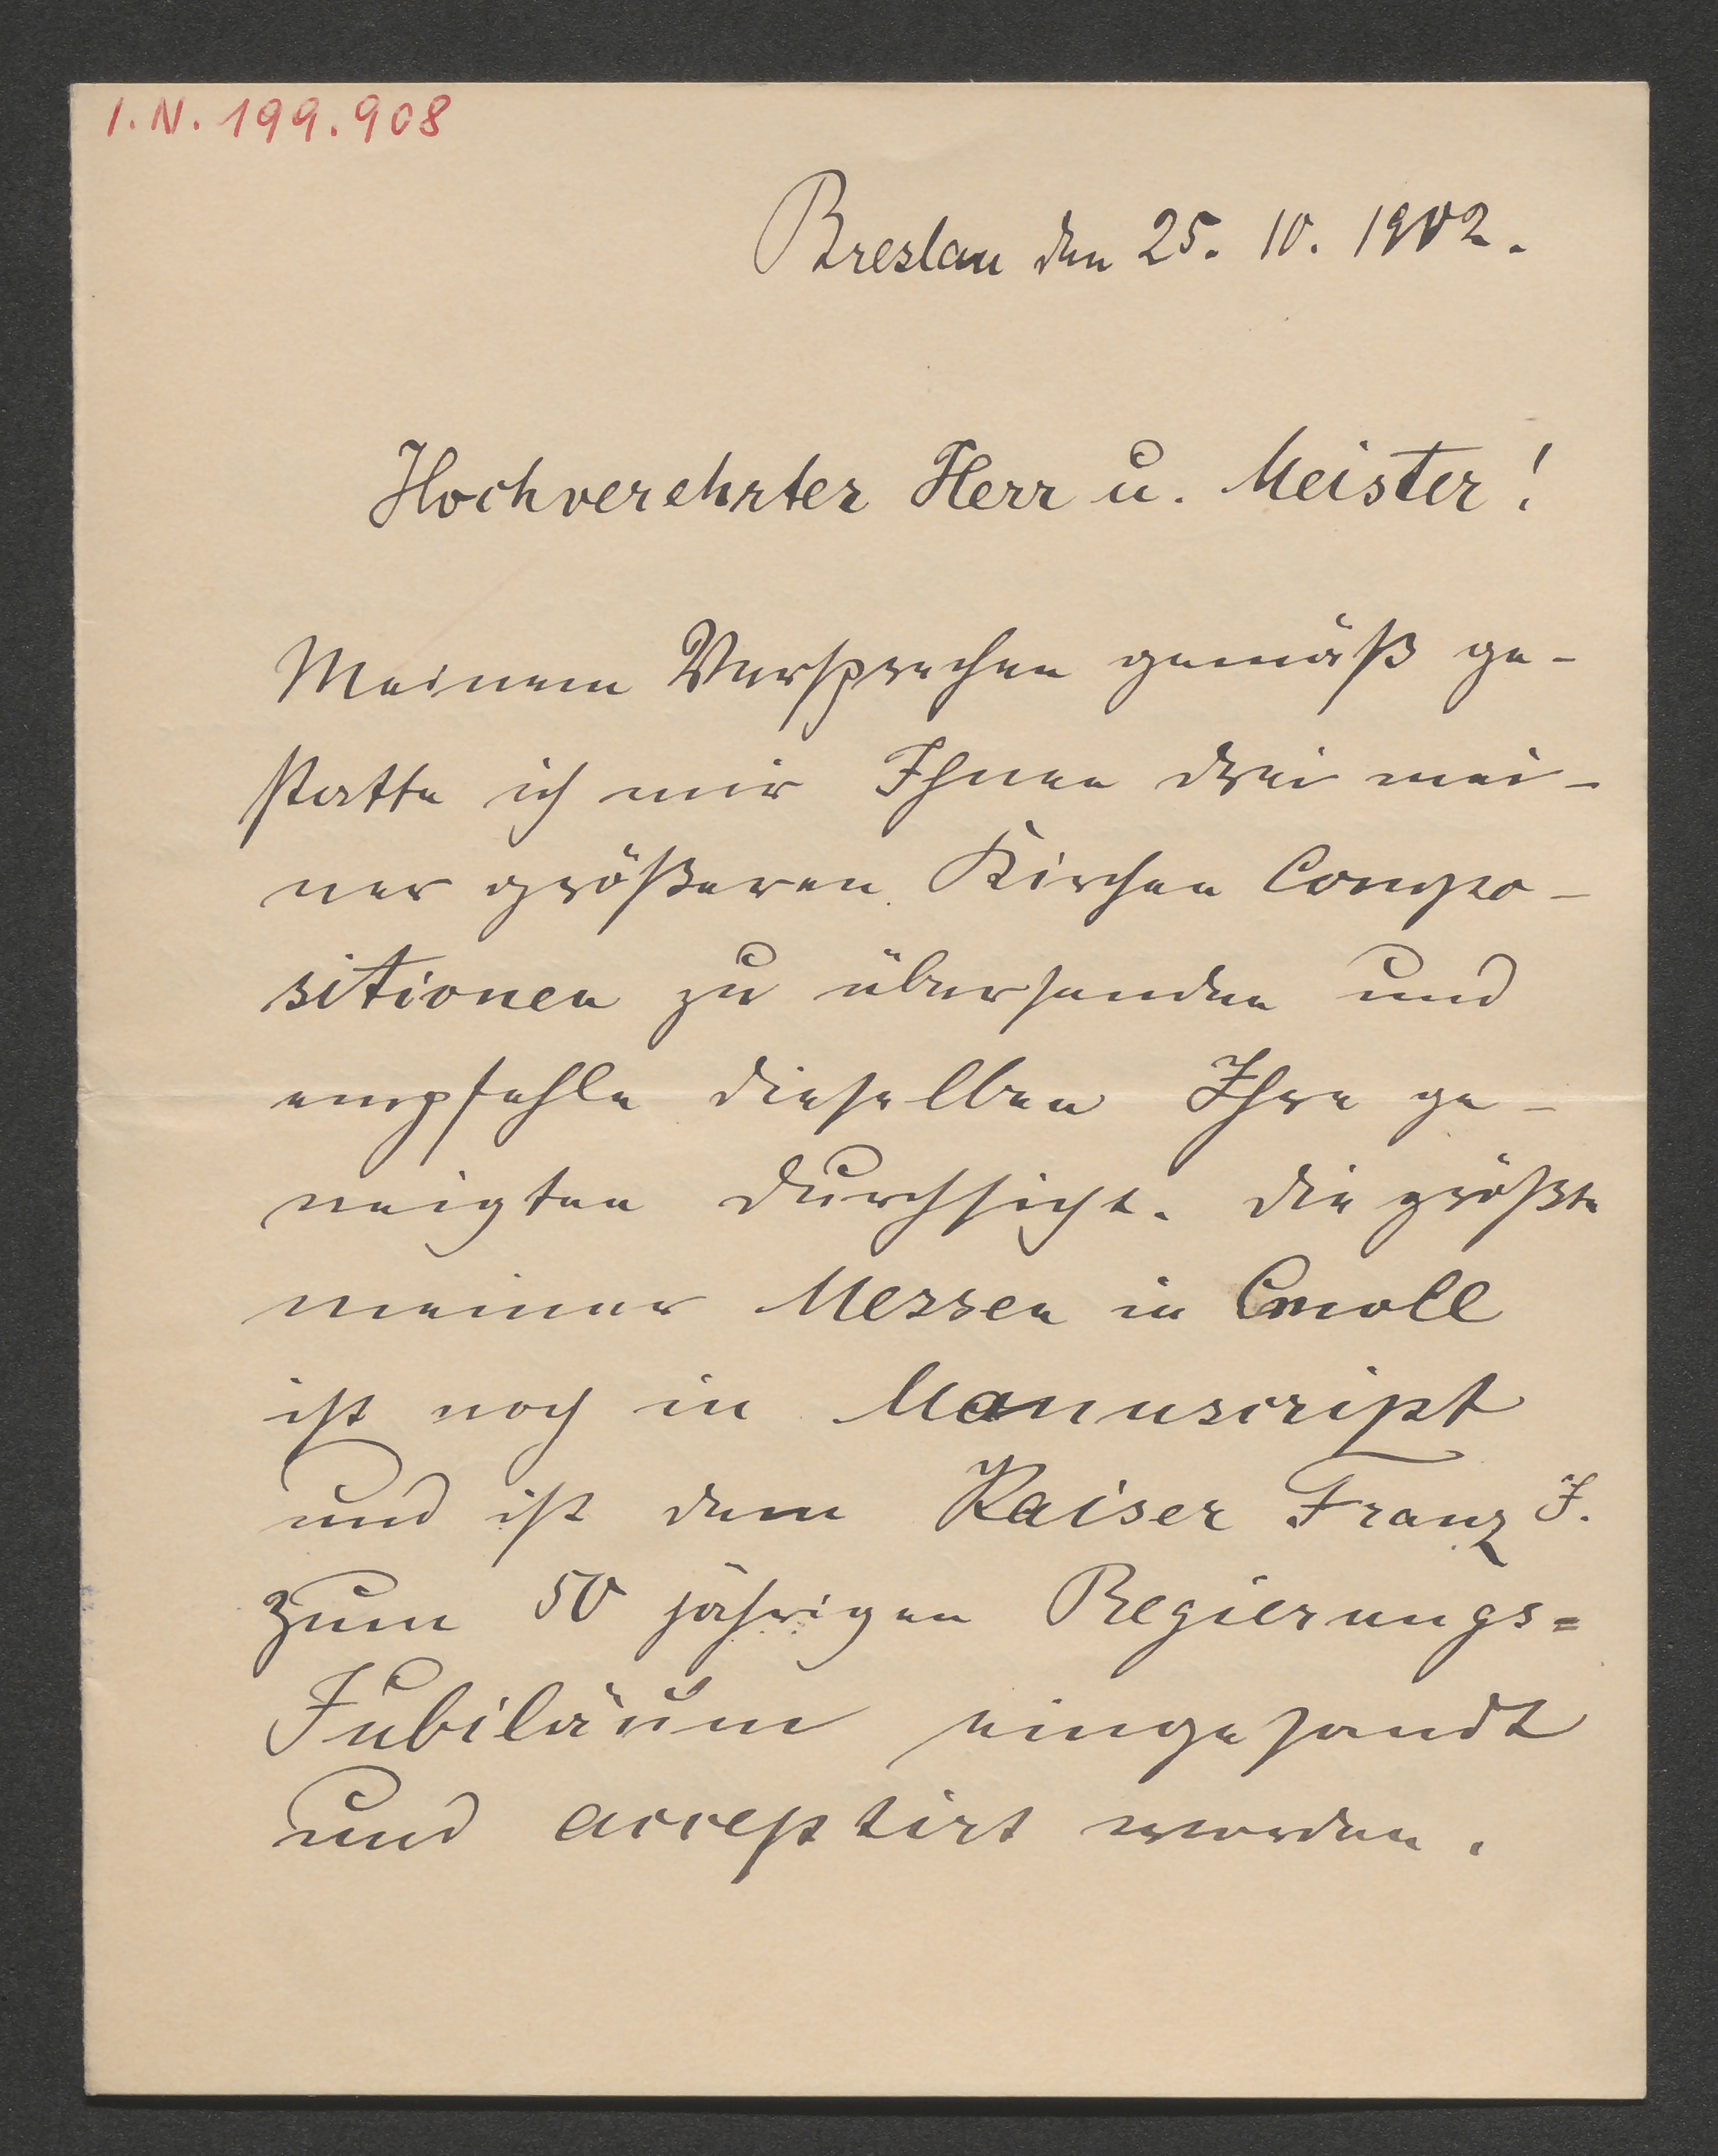 I.N. 199.908
Breslau den 25. 10. 1902.
Hochverehrter Herr u. Meister!
Meinem Versprechen gemäß ge-
statte ich mir Ihnen drei mei-
ner größeren Kirchen Compo-
sitionen zu übersenden und
empfehle dieselben Ihre ge-
neigten Durchsicht. Die größte
meiner Messen in Cmoll
ist noch in Manuscript
und ist dem Kaiser Franz J.
zum 50 jährigen Regierungs=
Jubiläum eingesandt
und acceptirt worden.